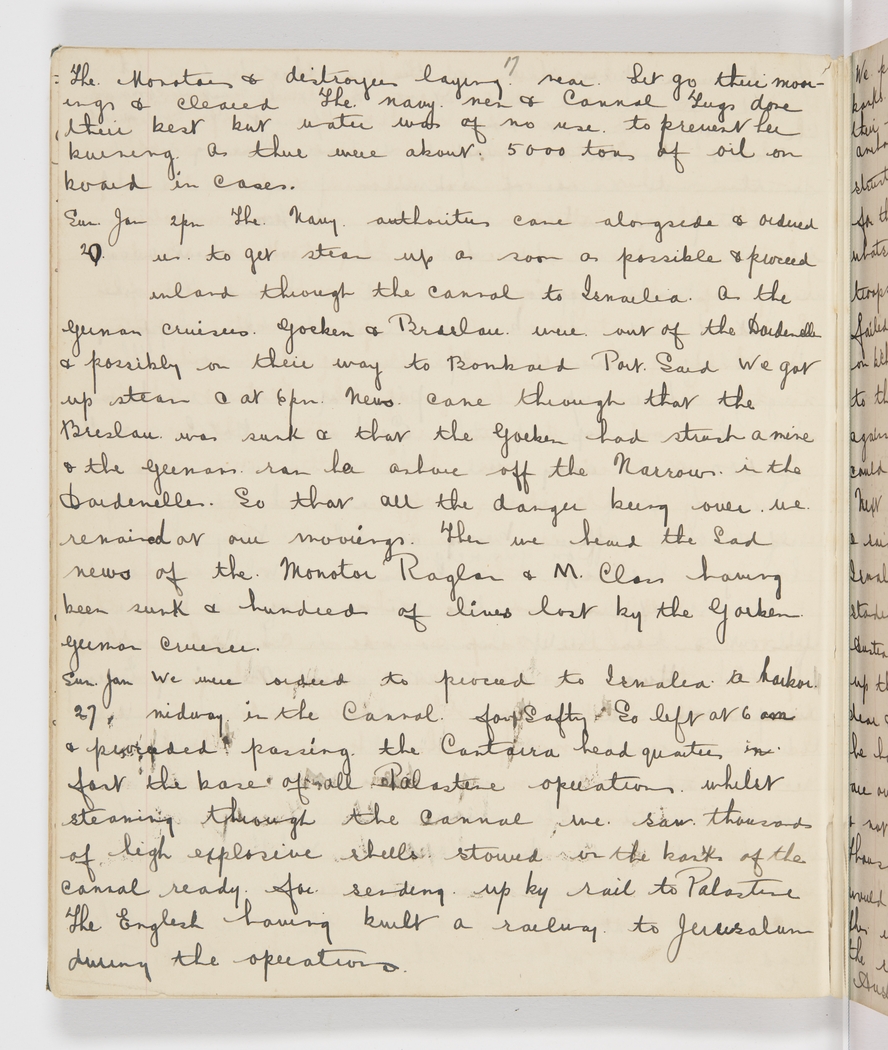 17
The. Monotors & distroyers laying near. Let go their moor-
ings & cleared The. navy. men & Cannal Tugs done
their best but water was of no use. to prevent her
burning. As there were about. 5000 tons of oil on
board in cases.
Sun. Jan 2pm The. Navy. authorities came alongside & ordered
20. us. to get steam up as soon as possible & proceed
inland through the cannal to Ismaelia. As the
German cruisers. Goeben & Breslau. were. out of the Dardenelles
& possibly on their way to Bombard Port. Said We got
up steam & at 6pm. News. came through that the
Breslau. was sunk & that the Goeben had struck a mine
& the Germans. ran her ashore off the Narrows. in the
Dardenelles. So that all the danger being over. we.
remained at our moorings. Then we heard the Sad
news of the. Monotor Raglan & M. Class having
been sunk & hundreds of lives lost by the Goeben.
German cruiser.
Sun. Jan We were ordered to proceed to Ismalea. a harbor.
27, midway. in the Cannal. for Safty. So left at 6 am
& proceeded passing. the Cantaira head quarters in.
fact the base of all Palastine operations. whilst
steaming. through the Cannal we. saw. thousands
of high explosive shells. stowed on the banks of the
cannal ready. for. sending. up by rail to Palastine
The English having built a railway. to Jerusalum
during the operations.